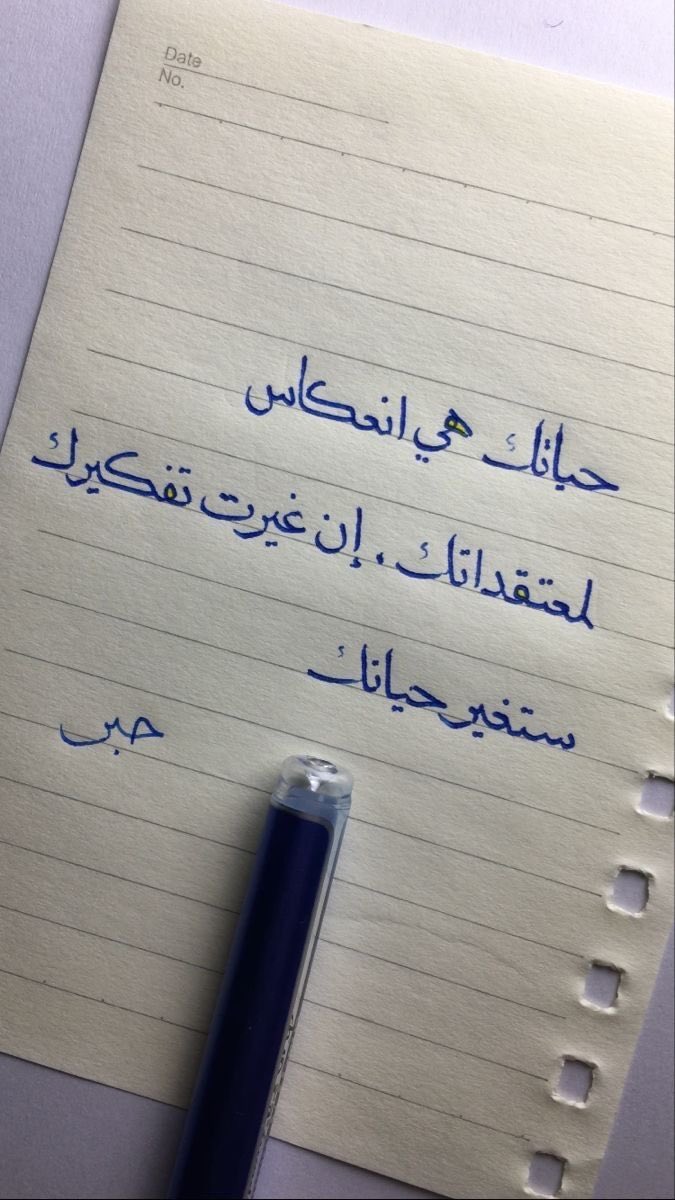 Date
No.
حياتك هي انعكاس
لمعتقداتك . إن غيرت تفكيرك
ستغير حياتك
حبر